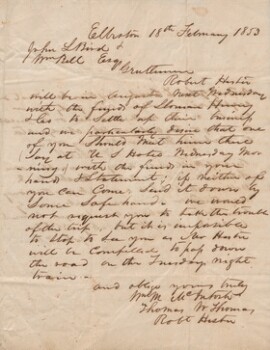 Elberton 18th February 1853
John L Bird &
Wm Bell Esq
Gentlemen
Robert Hester
will be in Augusta next Wednesday
with the funds of
& Co to Settle up their
and we particularly desire that one
of you Should meet him there
Say at U S Hotel Wednesday Mor-
ning with the funds in your
hand & Statement; if neither of
you can Come, Send it down by
Some Safe hand. we would
not request you to take the trouble
of the trip, but it is impossible
to Stop to see you as Mr Hester
will be Compelled to pass down
the road on the Tuesday night
train.
and oblige yours truly
Wm M McIntosh
Thomas W Thomas
Robt Hester